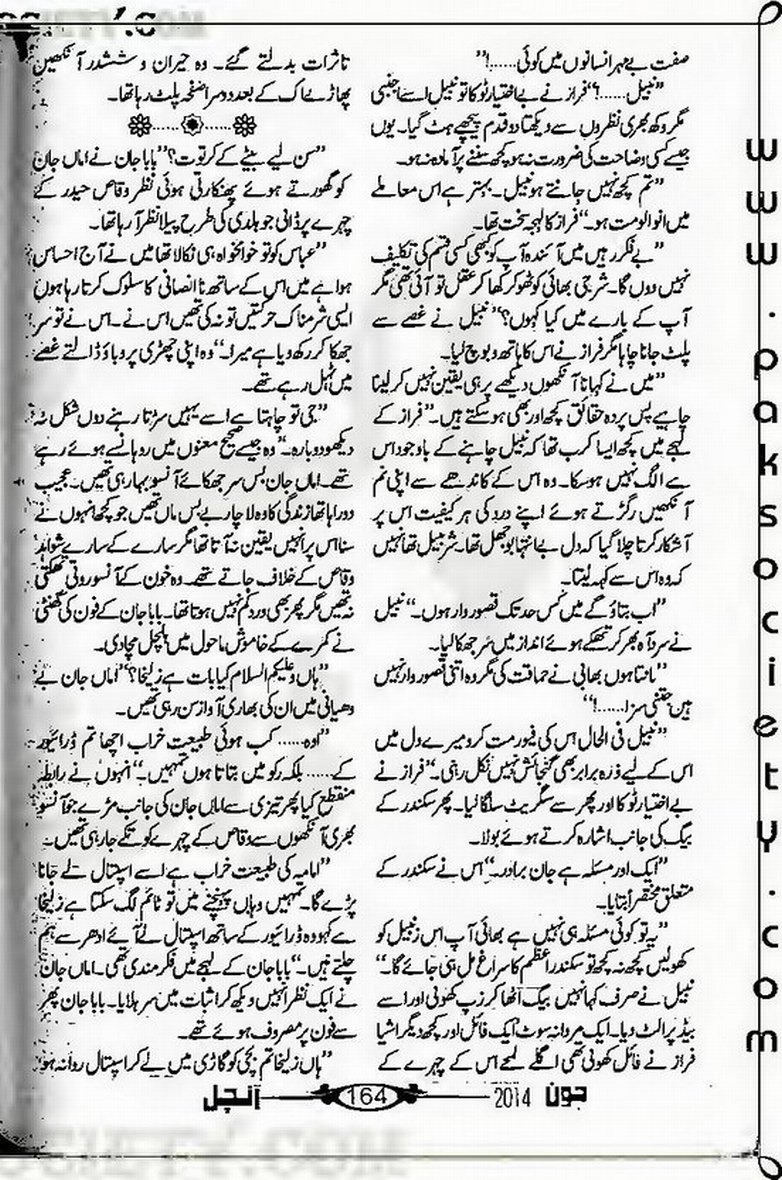 صفت بے مہر انسانوں میں کوئی......!"
"نبیل......!" فراز نے بے اختیار ٹوکا تو نبیل اسے اجنبی
مگر دکھ بھری نظروں سے دیکھتا دو قدم پیچھے ہٹ گیا۔ یوں
جیسے کسی وضاحت کی ضرورت نہ ہو کچھ سننے پر آمادہ نہ ہو۔
"تم کچھ نہیں جانتے ہو نبیل۔ بہتر ہے اس معاملے
میں انوالو مت ہو۔" فراز کا لہجہ سخت تھا۔
"بے فکر رہیں میں آئندہ آپ کو کبھی کسی قسم کی تکلیف
نہیں دوں گا۔ شرجی بھائی کو ٹھوکر کھا کر عقل تو آئی تھی مگر
آپ کے بارے میں کیا کہوں؟" نبیل نے غصے سے
پلٹ جانا چاہا مگر فراز نے اس کا ہاتھ دبوچ لیا۔
"میں نے کہا نا آنکھوں دیکھے پر ہی یقین نہیں کر لینا
چاہیے پس پردہ حقائق کچھ اور بھی ہو سکتے ہیں۔" فراز کے
لہجے میں کچھ ایسا کرب تھا کہ نبیل چاہنے کے باوجود اس
سے الگ نہیں ہو سکا۔ وہ اس کے کاندھے سے اپنی نم
آنکھیں رگڑتے ہوئے اپنے درد کی ہر کیفیت اس پر
آشکار کرتا چلا گیا کہ دل بے انتہا بوجھل تھا۔ شرجیل تھا نہیں
کہ وہ اس سے کہہ لیتا۔
"اب بتاؤ گے میں کس حد تک قصور وار ہوں۔" نبیل
نے سرد آہ بھر کر تھکے ہوئے انداز میں سر جھکا لیا۔
"مانتا ہوں بھابی نے حماقت کی مگر وہ اتنی قصور وار نہیں
ہیں جتنی سزا......!"
"نبیل فی الحال اس کی فیور مت کرو میرے دل میں
اس کے لیے ذرہ برابر بھی گنجائش نہیں نکل رہی۔" فراز نے
بے اختیار ٹوکا اور پھر سے سگریٹ سلگا لیا۔ پھر سکندر کے
بیگ کی جانب اشارہ کرتے ہوئے بولا۔
"ایک اور مسئلہ ہے جان برادر۔" اس نے سکندر کے
متعلق مختصر بتایا۔
"یہ تو کوئی مسئلہ ہی نہیں ہے بھائی آپ اس زنبیل کو
کھولیں کچھ نہ کچھ تو سکندر اعظم کا سراغ مل ہی جائے گا۔"
نبیل نے صرف کہا نہیں بیگ اٹھا کر زپ کھولی اور اسے
بیڈ پر الٹ دیا۔ ایک مردانہ سوٹ ایک فائل اور کچھ دیگر اشیا
فراز نے فائل کھولی تھی اگلے لمحے اس کے چہرے کے
تاثرات بدلتے گئے۔ وہ حیران و ششدر آنکھیں
پھاڑے اک کے بعد دوسرا صفحہ پلٹ رہا تھا۔
"سن لیے بیٹے کے کرتوت؟" بابا جان نے اماں جان
کو گھورتے ہوئے پھنکارتی ہوئی نظر وقاص حیدر کے
چہرے پر ڈالی جو ہلدی کی طرح پیلا نظر آ رہا تھا۔
"عباس کو تو خوامخواہ ہی نکالا تھا میں نے آج احساس
ہوا ہے میں اس کے ساتھ نا انصافی کا سلوک کرتا رہا ہوں
ایسی شرمناک حرکتیں تو نہ کی تھیں اس نے۔ اس نے تو سر
جھکا کر رکھ دیا ہے میرا۔" وہ اپنی چھڑی پر دباؤ ڈالتے غصے
میں ٹہل رہے تھے۔
"جی تو چاہتا ہے اسے یہیں سڑتا رہنے دوں شکل نہ
دیکھوں دوبارہ۔" وہ جیسے صحیح معنوں میں روہانسے ہوئے رہے
تھے۔ اماں جان بس سر جھکائے آنسو بہا رہی تھیں۔ عجیب
دوراہا تھا زندگی کا وہ لاچار بے بس ماں تھیں جو کچھ انہوں نے
سنا اس پر انہیں یقین نہ آتا تھا مگر سارے کے سارے شواہد
وقاص کے خلاف جاتے تھے۔ وہ خون کے آنسو روتی تھکتی
نہ تھیں مگر پھر بھی درد کم نہیں ہوتا تھا۔ بابا جان کے فون کی گھنٹی
نے کمرے کے خاموش ماحول میں ہلچل مچا دی۔
"ہاں وعلیکم السلام کیا بات ہے زلیخا؟" اماں جان بے
دھیانی میں ان کی بھاری آواز سن رہی تھیں۔
"اوہ...... کب ہوئی طبیعت خراب اچھا تم ڈرائیور
کے...... بلکہ رکو میں بتاتا ہوں تمہیں۔" انہوں نے رابطہ
منقطع کیا پھر تیزی سے اماں جان کی جانب مڑے جو آنسو
بھری آنکھوں سے وقاص کے چہرے کو تکے جا رہی تھیں۔
"امامہ کی طبیعت خراب ہے اسے اسپتال لے جانا
پڑے گا۔ تمہیں وہاں پہنچنے میں تو ٹائم لگ سکتا ہے زلیخا
سے کہو وہ ڈرائیور کے ساتھ اسپتال لے آئے ادھر سے ہم
چلتے ہیں۔" بابا جان کے لہجے میں فکر مندی تھی۔ اماں جان
نے ایک نظر انہیں دیکھ کر اثبات میں سر ہلایا۔ بابا جان پھر
سے فون پر مصروف ہوئے تھے۔
"ہاں زلیخا تم بچی کو گاڑی میں لے کر اسپتال روانہ ہو
جون 2014
164
آنچل
www.paksociety.com